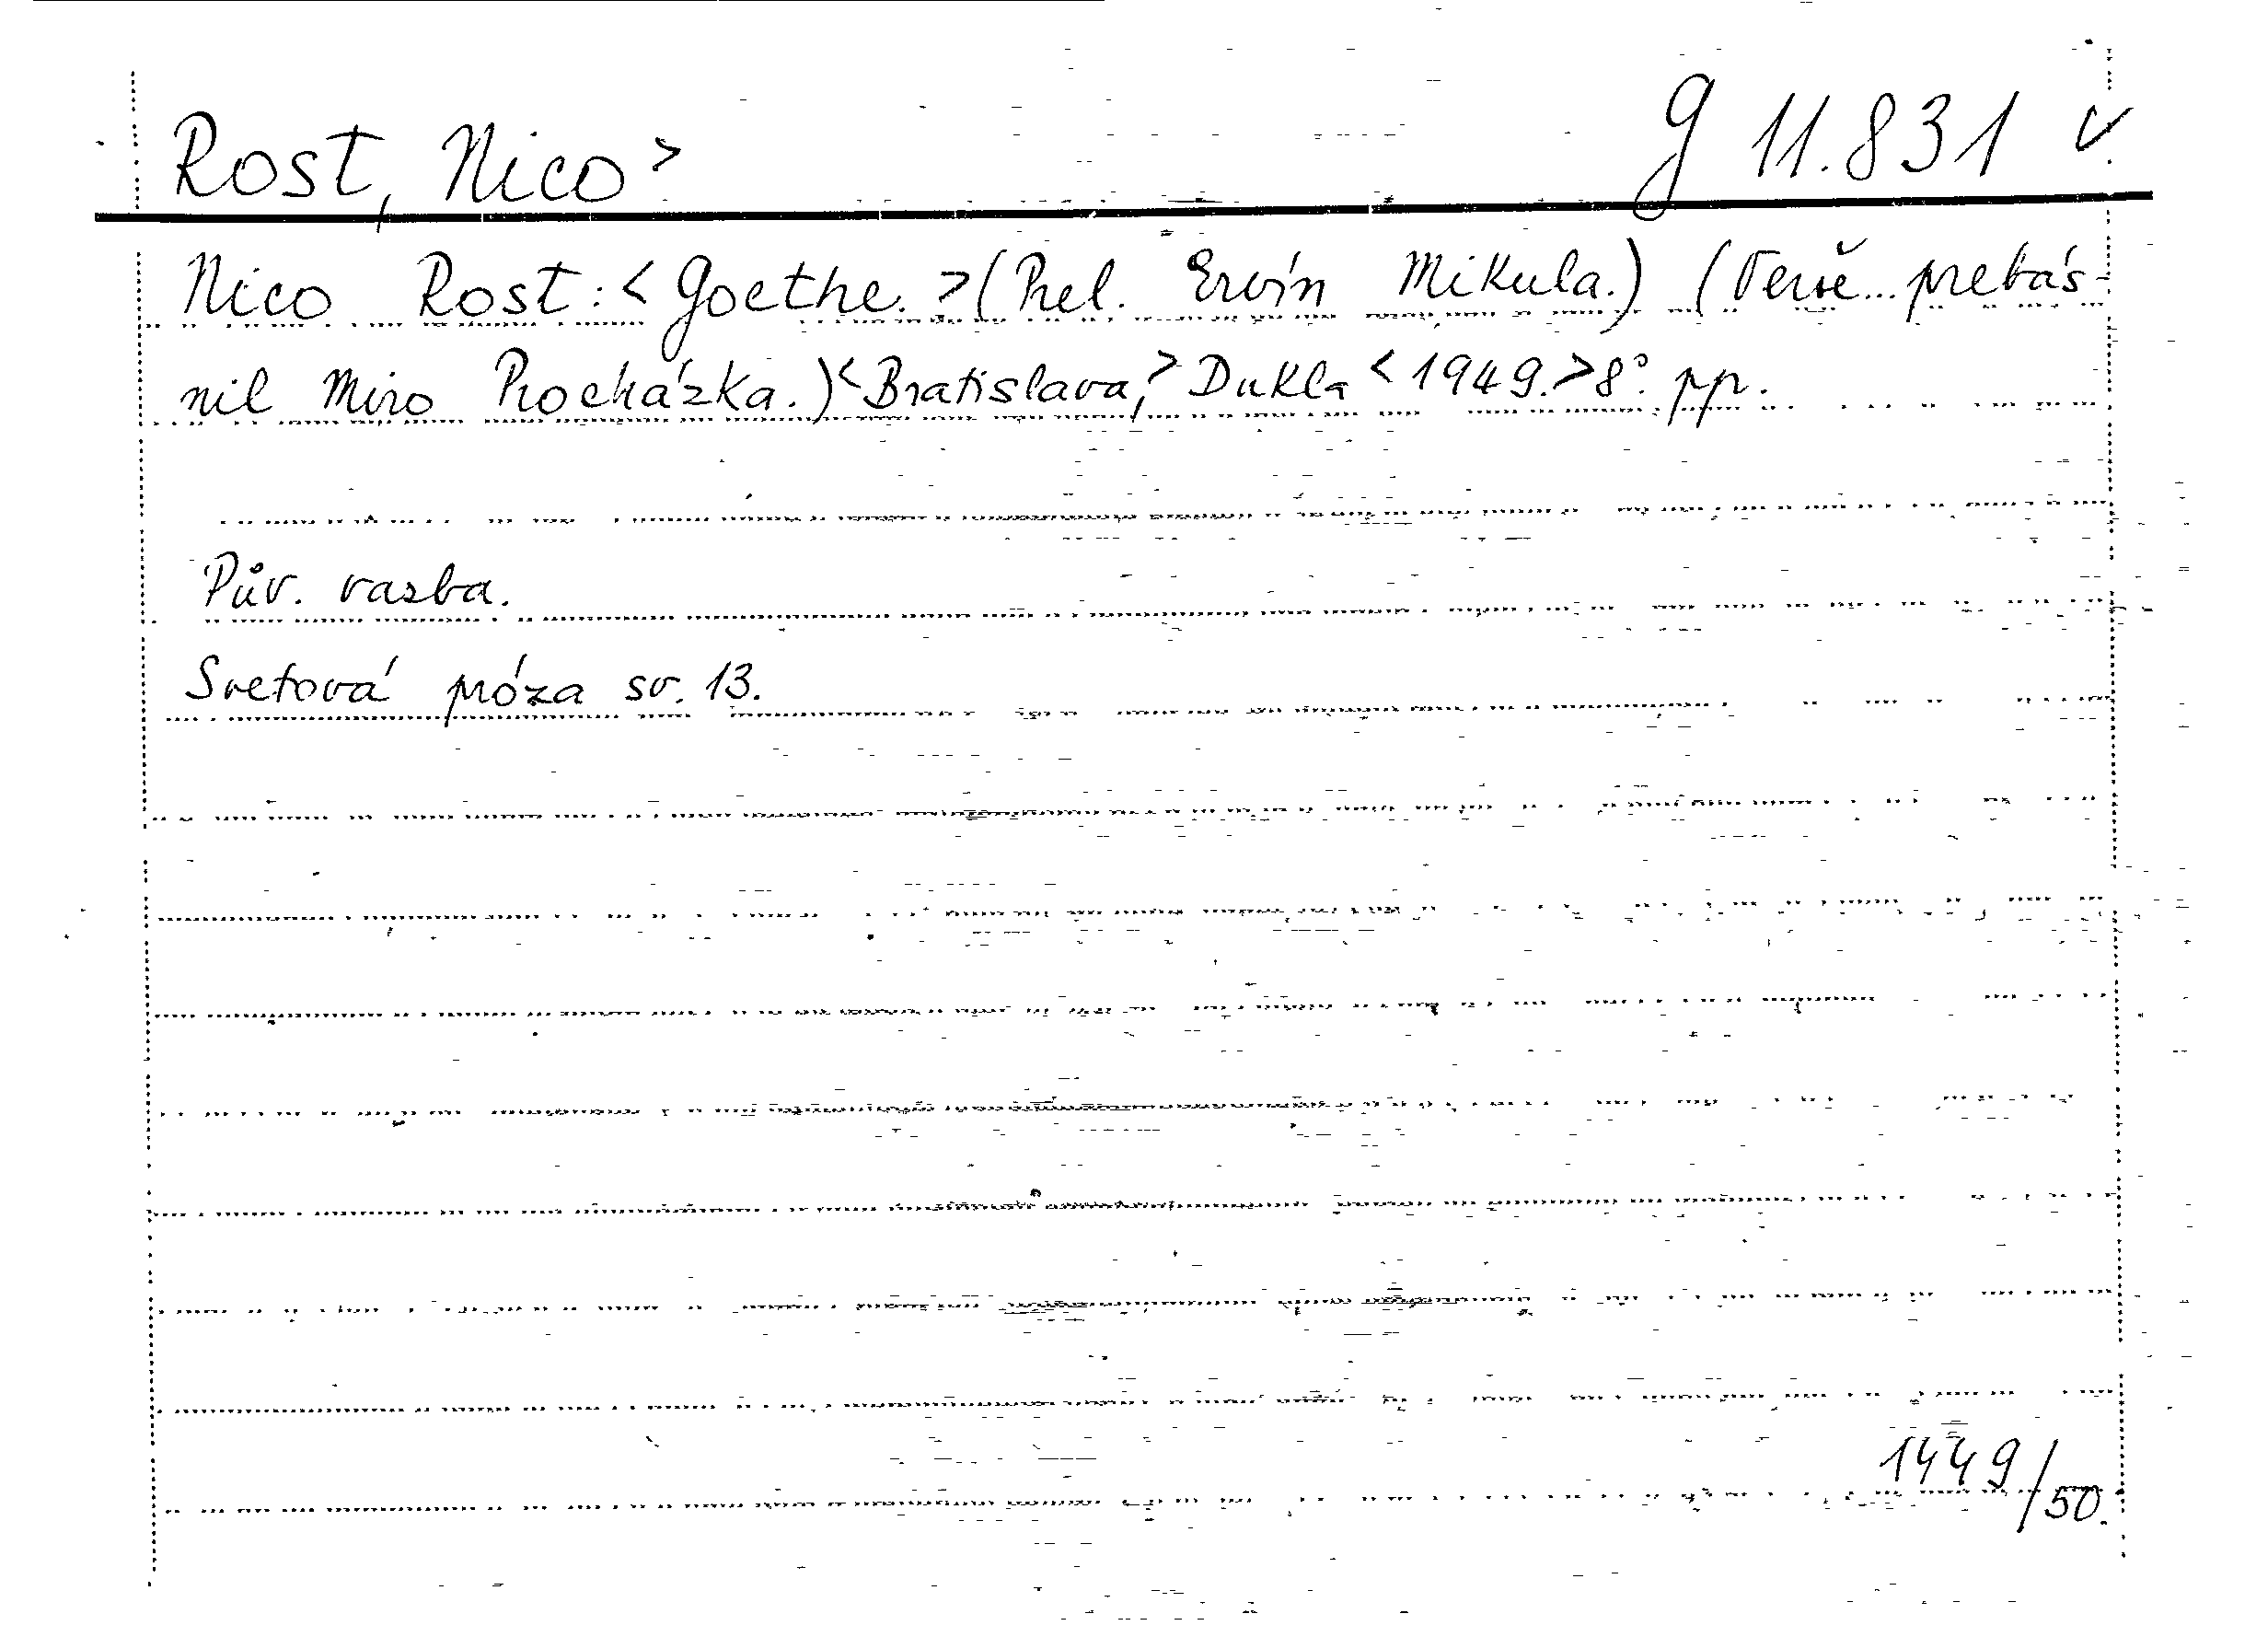 Rost, Nico > g 11.831 v.
Nico Rost: < Goethe. > (Prel. Ervín Mikula.) (Verše... prebás-
nil Miro Procházka.) < Bratislava, > Dukla < 1949. > 8°. pp.
Pův. vazba.
Svetová próza sv. 13.
1449/50.